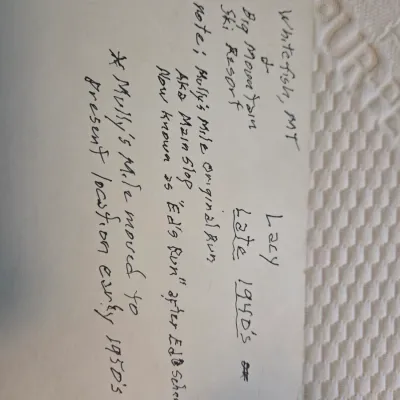 Whitefish, MT
&
Big Mountain
Ski Resort
Lacy
Late 1940's
note; Mully's Mile original Run
AKA Main Slop
Now known as "Ed's Run" after Ed
* Mully's Mile moved to
present location early 1950's